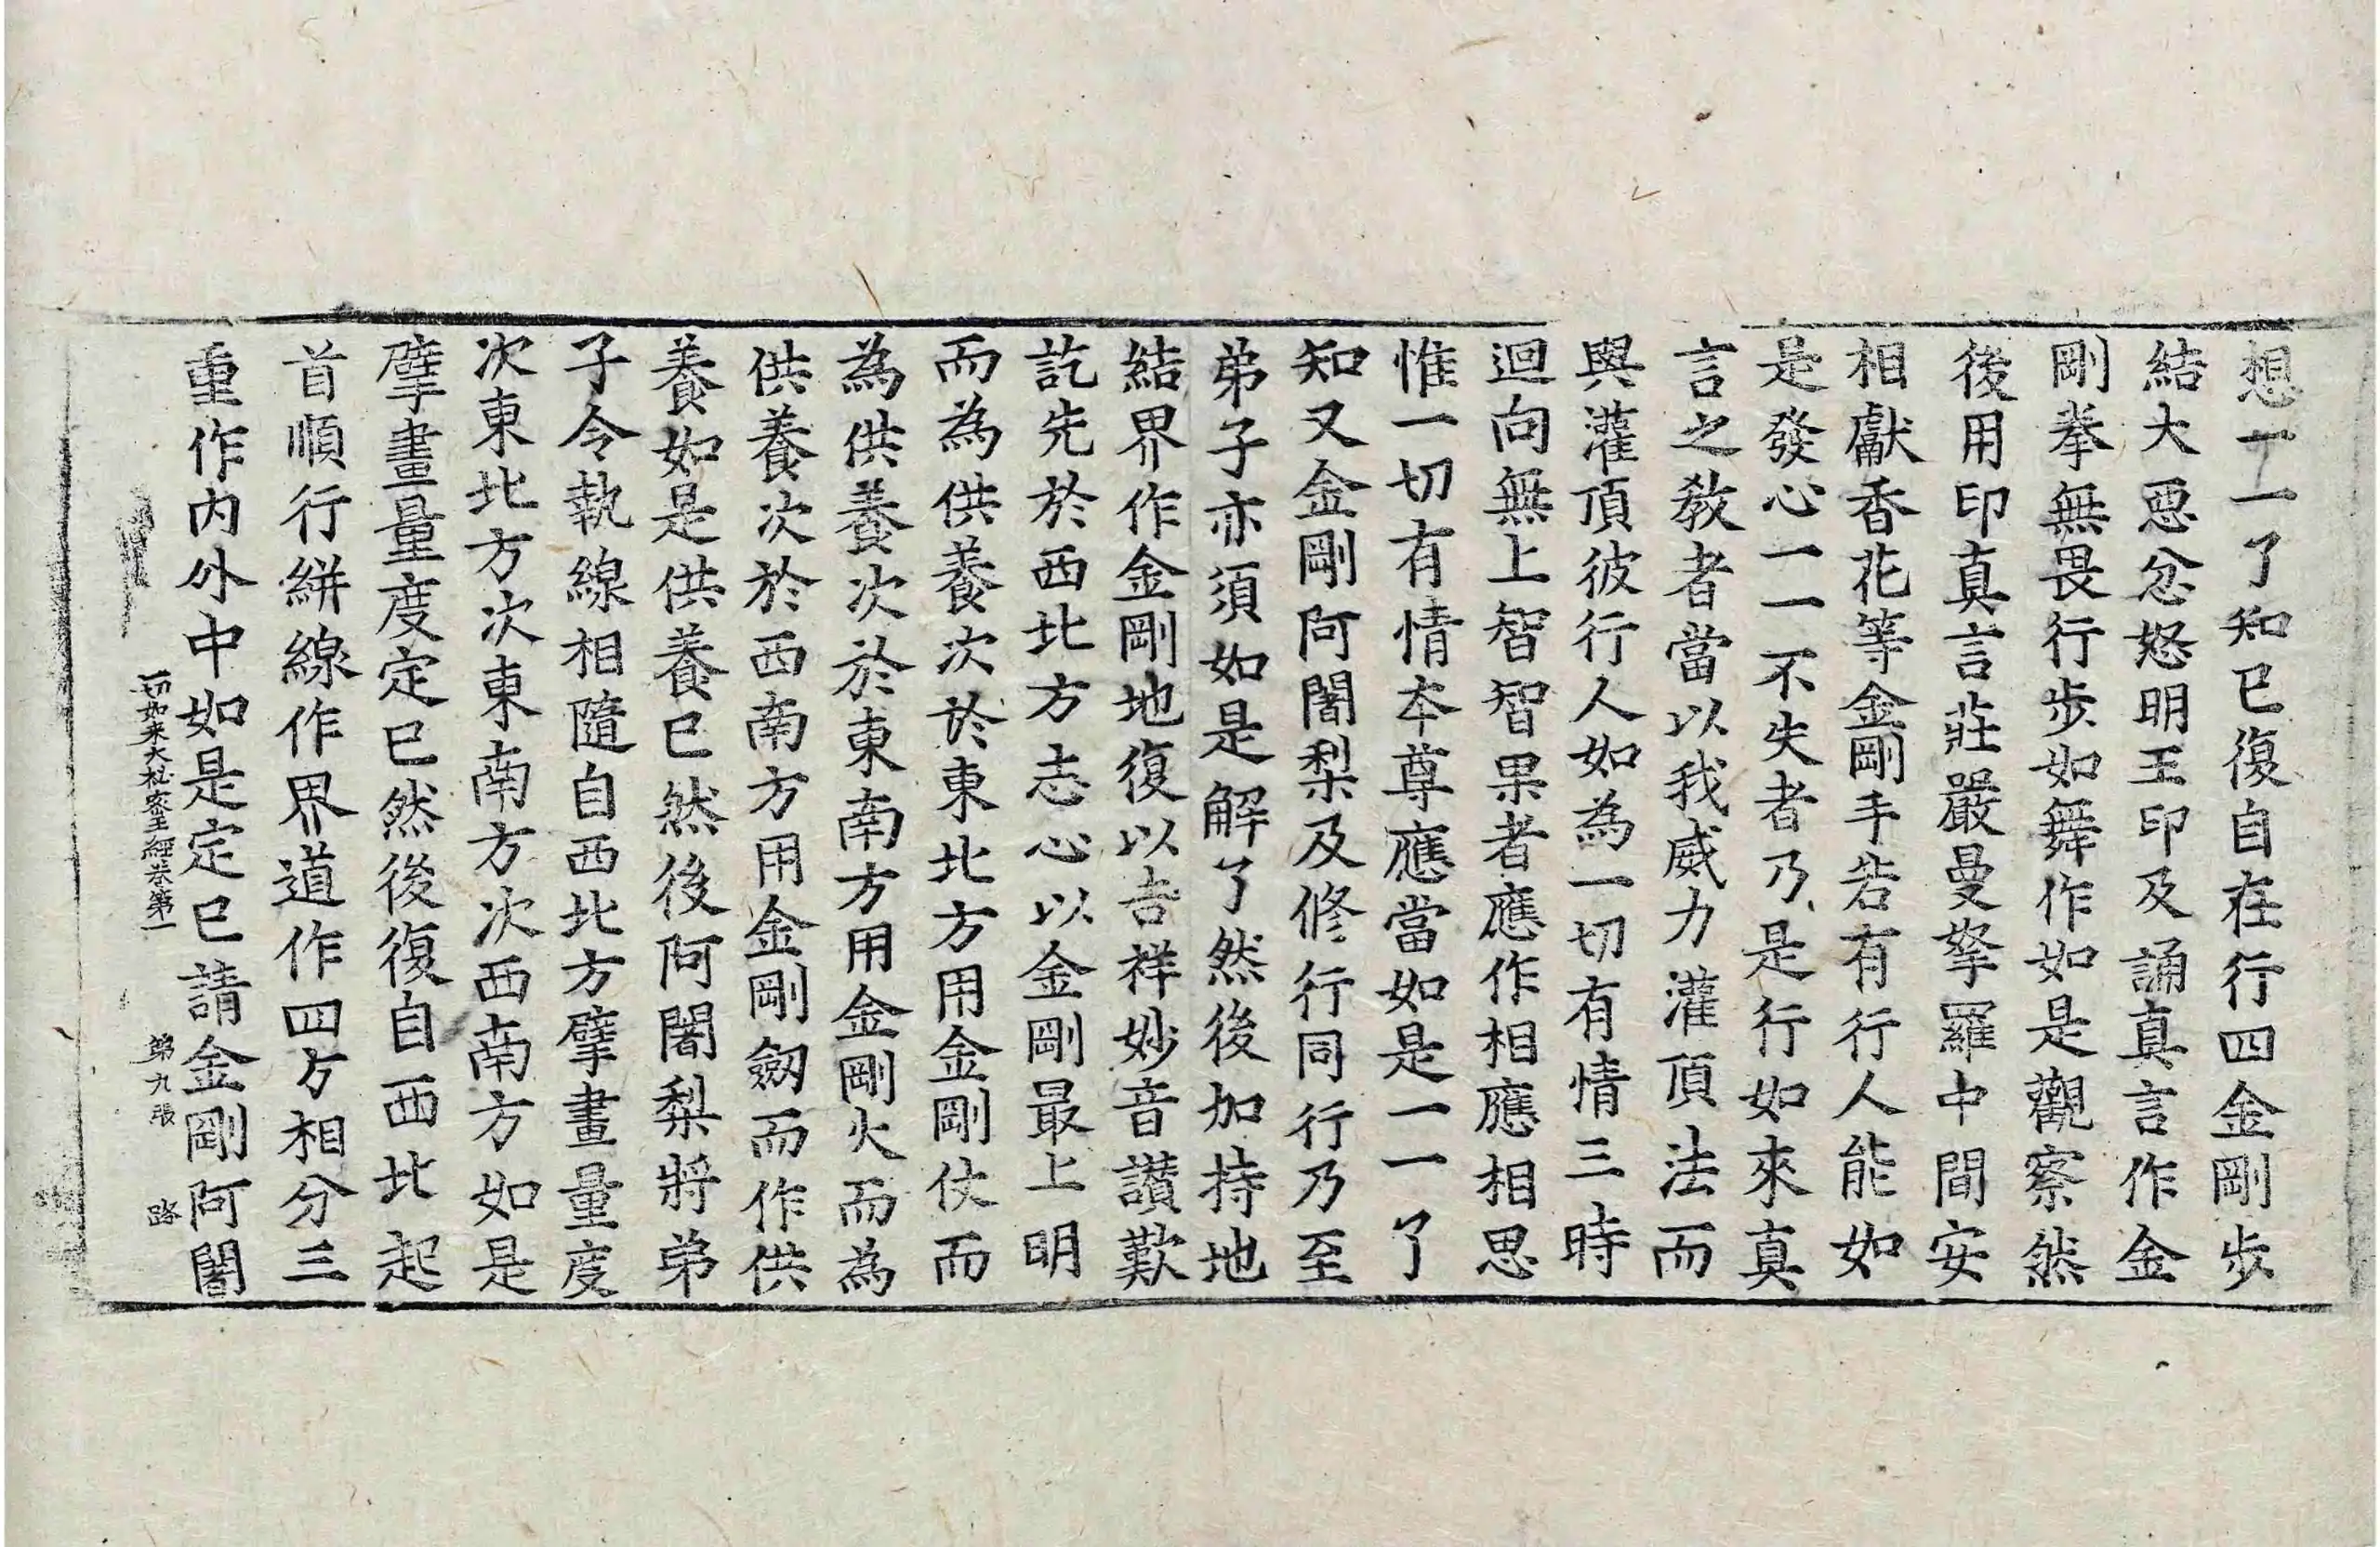 想一一了知已復自在行四金剛步
結大惡忿怒明王印及誦真言作金
剛拳無畏行步如舞作如是觀察然
後用印真言莊嚴曼拏羅中間安
相獻香花等金剛手若有行人能如
是發心一一不失者乃是行如來真
言之教者當以我威力灌頂法而
與灌頂彼行人如為一切有情三時
迴向無上智智果者應作相應相思
惟一切有情本尊應當如是一一了
知又金剛阿闍梨及修行同行乃至
弟子亦須如是解了然後加持地
結界作金剛地復以吉祥妙音讚歎
訖先於西北方志心以金剛最上明
而為供養次於東北方用金剛仗而
為供養次於東南方用金剛火而為
供養次於西南方用金剛劒而作供
養如是供養已然後阿闍梨將弟
子令執線相隨自西北方擘畫量度
次東北方次東南方次西南方如是
擘畫量度定已然後復自西北起
首順行絣線作界道作四方相分三
重作內外中如是定已請金剛阿闍
一切如来大秘密王經卷第一 第九張 路